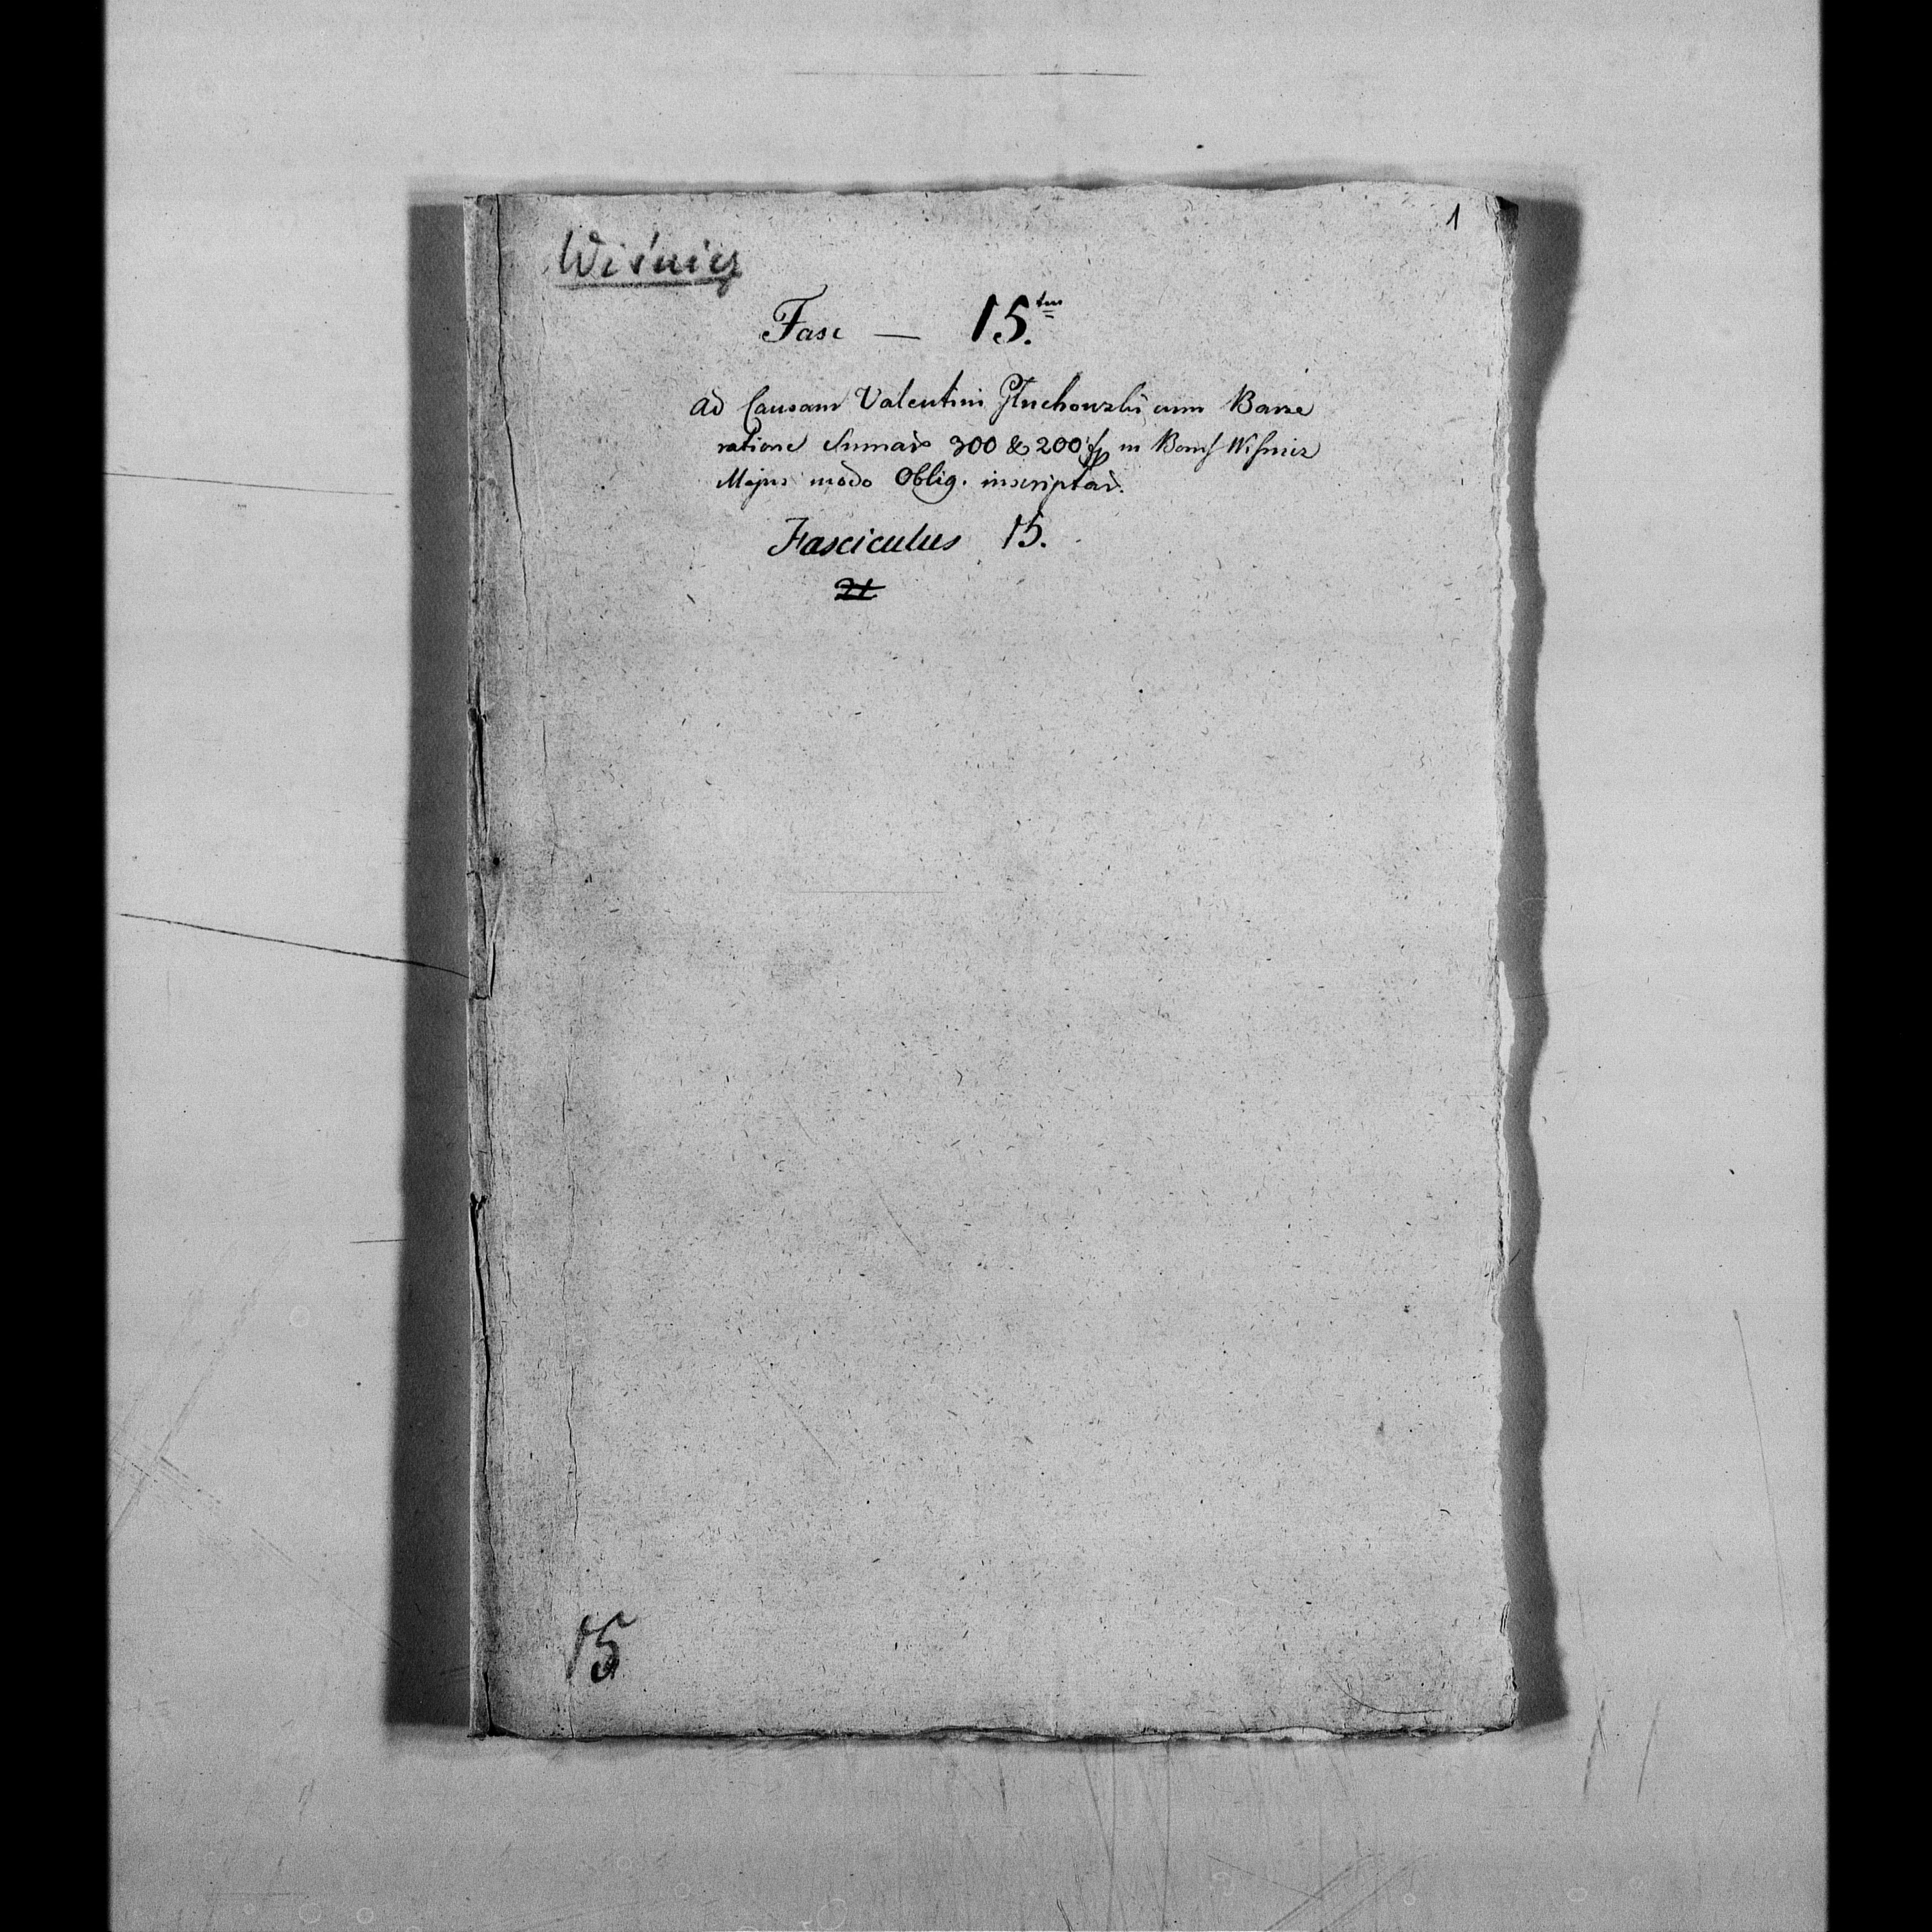 1
Wiśnicz
Fasc — 15.tus
Ad Causam Valentini Głuchowski cum Barze
ratione Summar 300 & 200 fp in Bonis Wisnicz
Majus modo Oblig. inscriptar.
Fasciculus 15.
21
15